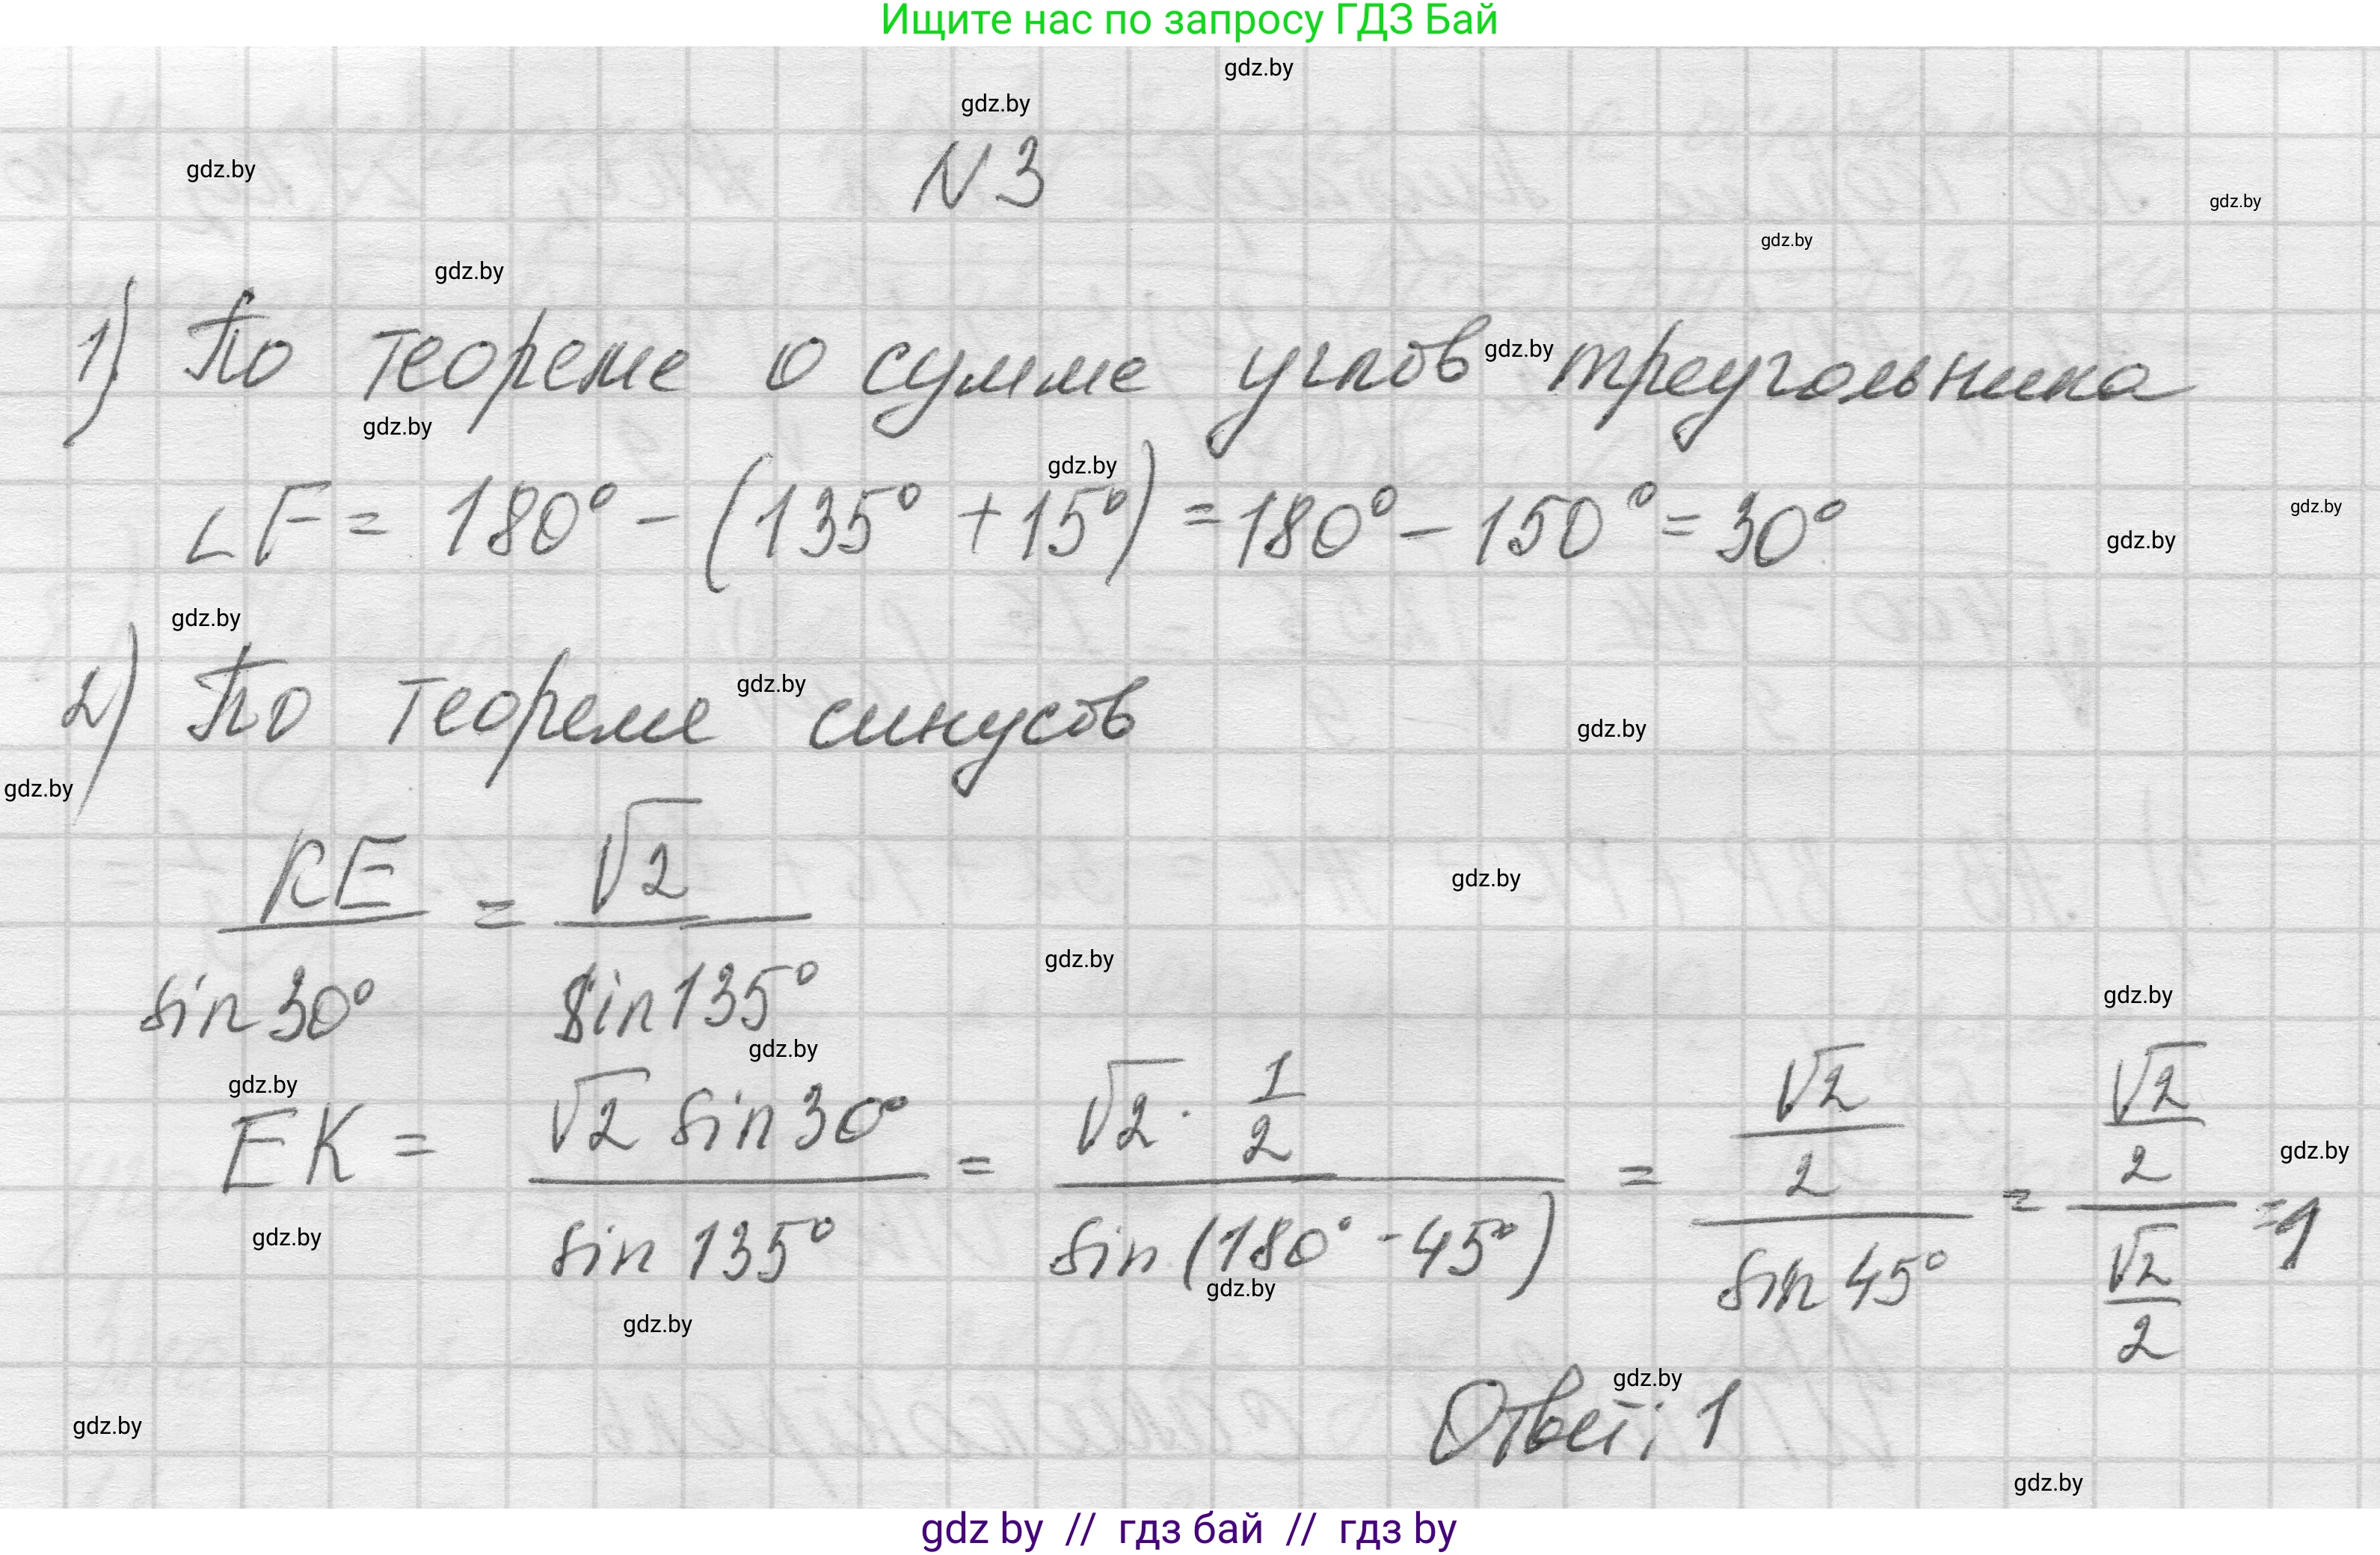 Ищите нас по запросу ГДЗ Бай
gdz.by
gdz.by
N 3
gdz.by
gdz.by
gdz.by
gdz.by
1) По теореме о сумме углов треугольника
gdz.by
gdz.by
gdz.by
∠F = 180° - (135° + 15°) = 180° - 150° = 30°
gdz.by
gdz.by
gdz.by
2) По теореме синусов
gdz.by
gdz.by
gdz.by
KE / sin 30° = √2 / sin 135°
gdz.by
gdz.by
gdz.by
gdz.by
gdz.by
EK = √2 sin 30° / sin 135° = √2 · 1/2 / sin (180° - 45°) = √2/2 / sin 45° = √2/2 / √2/2 = 1
gdz.by
gdz.by
gdz.by
gdz.by
gdz.by
Ответ: 1
gdz.by
gdz.by
gdz by // гдз бай // гдз by